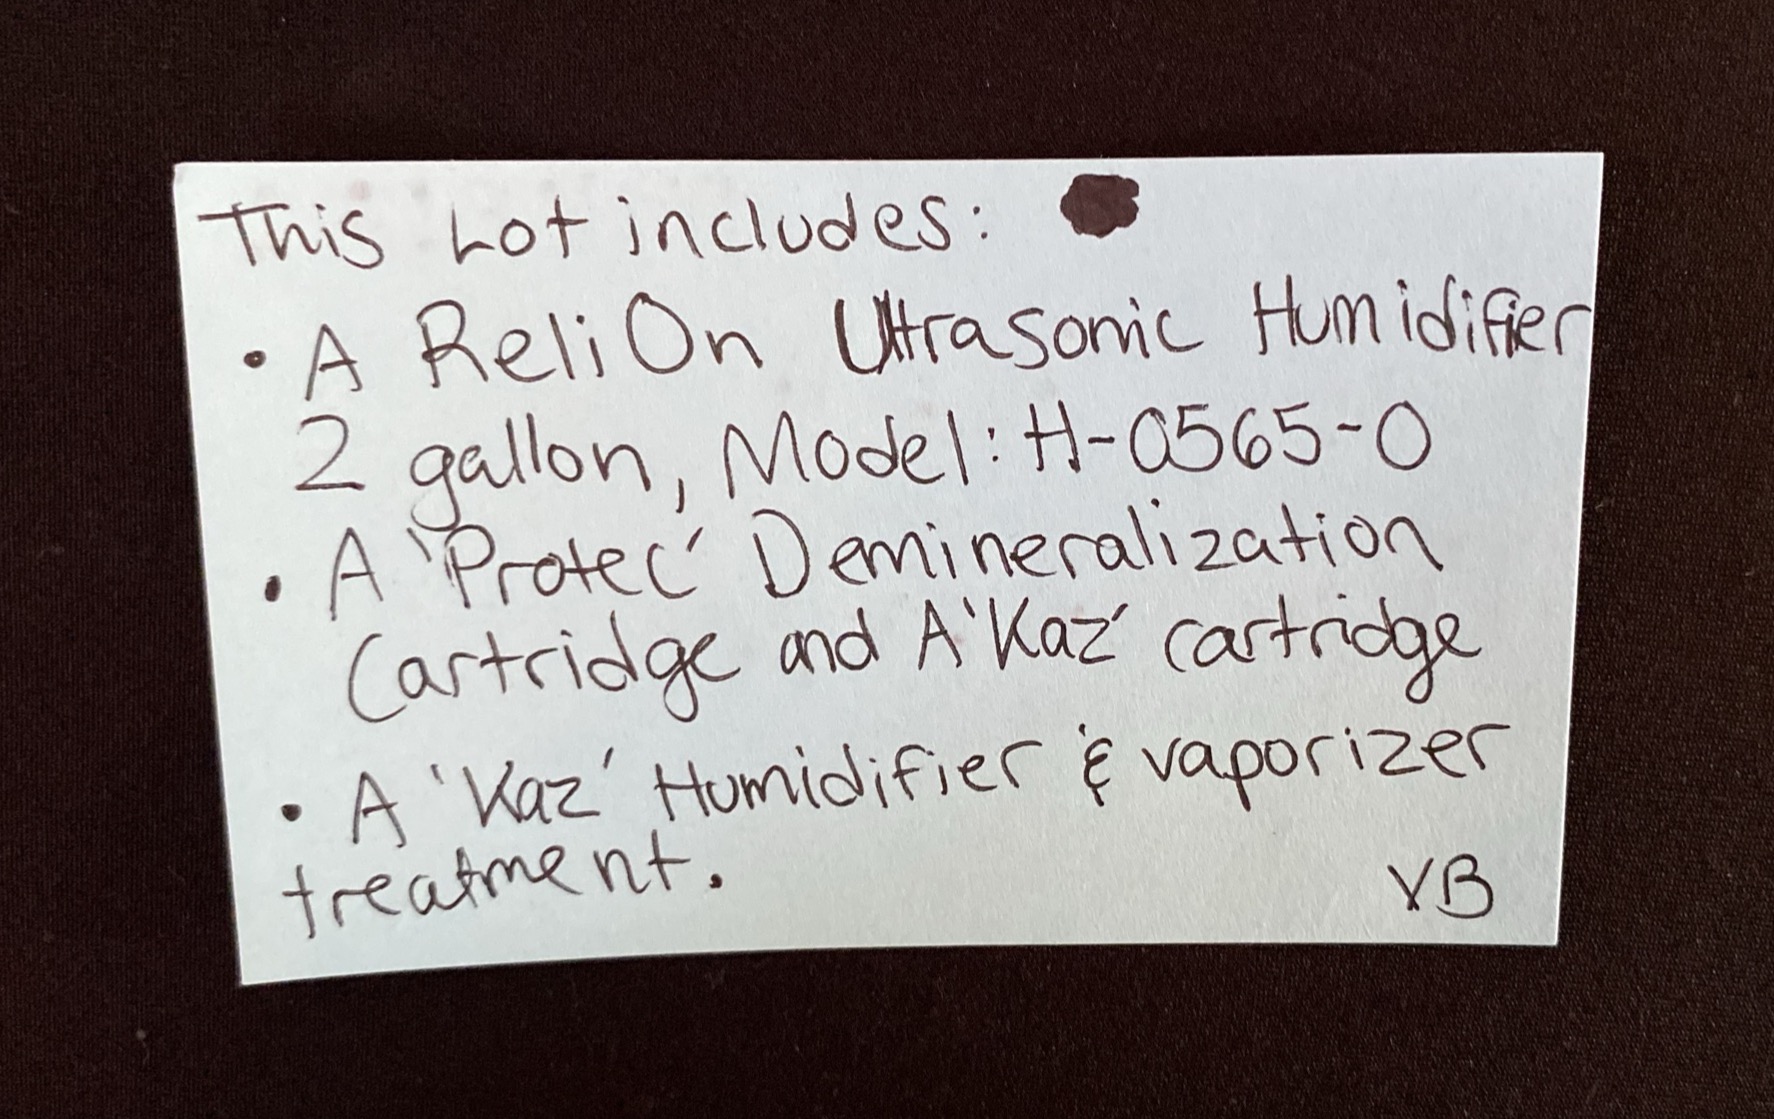 This Lot includes:
• A ReliOn Ultrasonic Humidifier
2 gallon, Model: H-0565-0
• A 'Protec' Demineralization
Cartridge and A 'Kaz' cartridge
• A 'Kaz' Humidifier & vaporizer
treatment.
YB